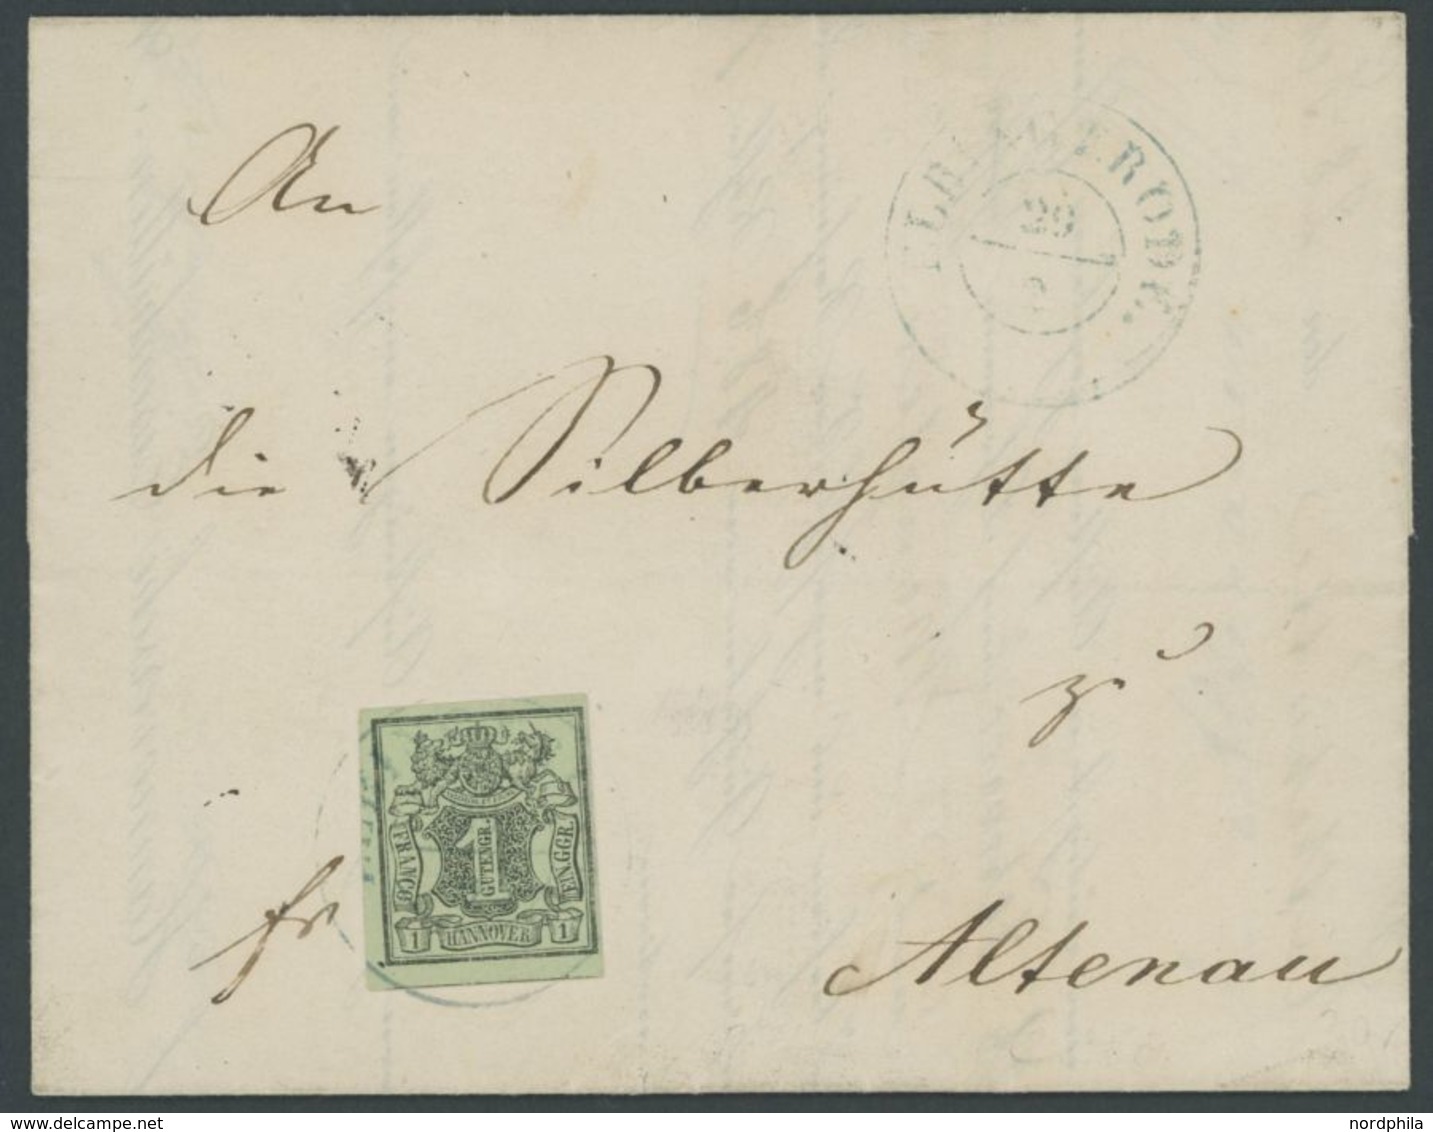 An
ELBINGERODE.
29
2
die Silberhütte
zu
fr
FRANCO
1
GUTENGR.
EIN.GGR.
1 HANNOVER 1
Altenau
delcampe.net
nordphila